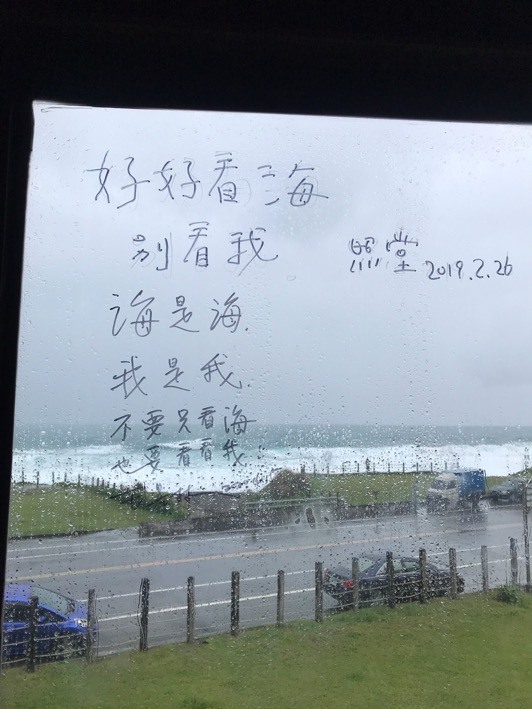 好好看海
別看我。
照堂 2019.2.26
海是海.
我是我.
不要只看海
也要看看我